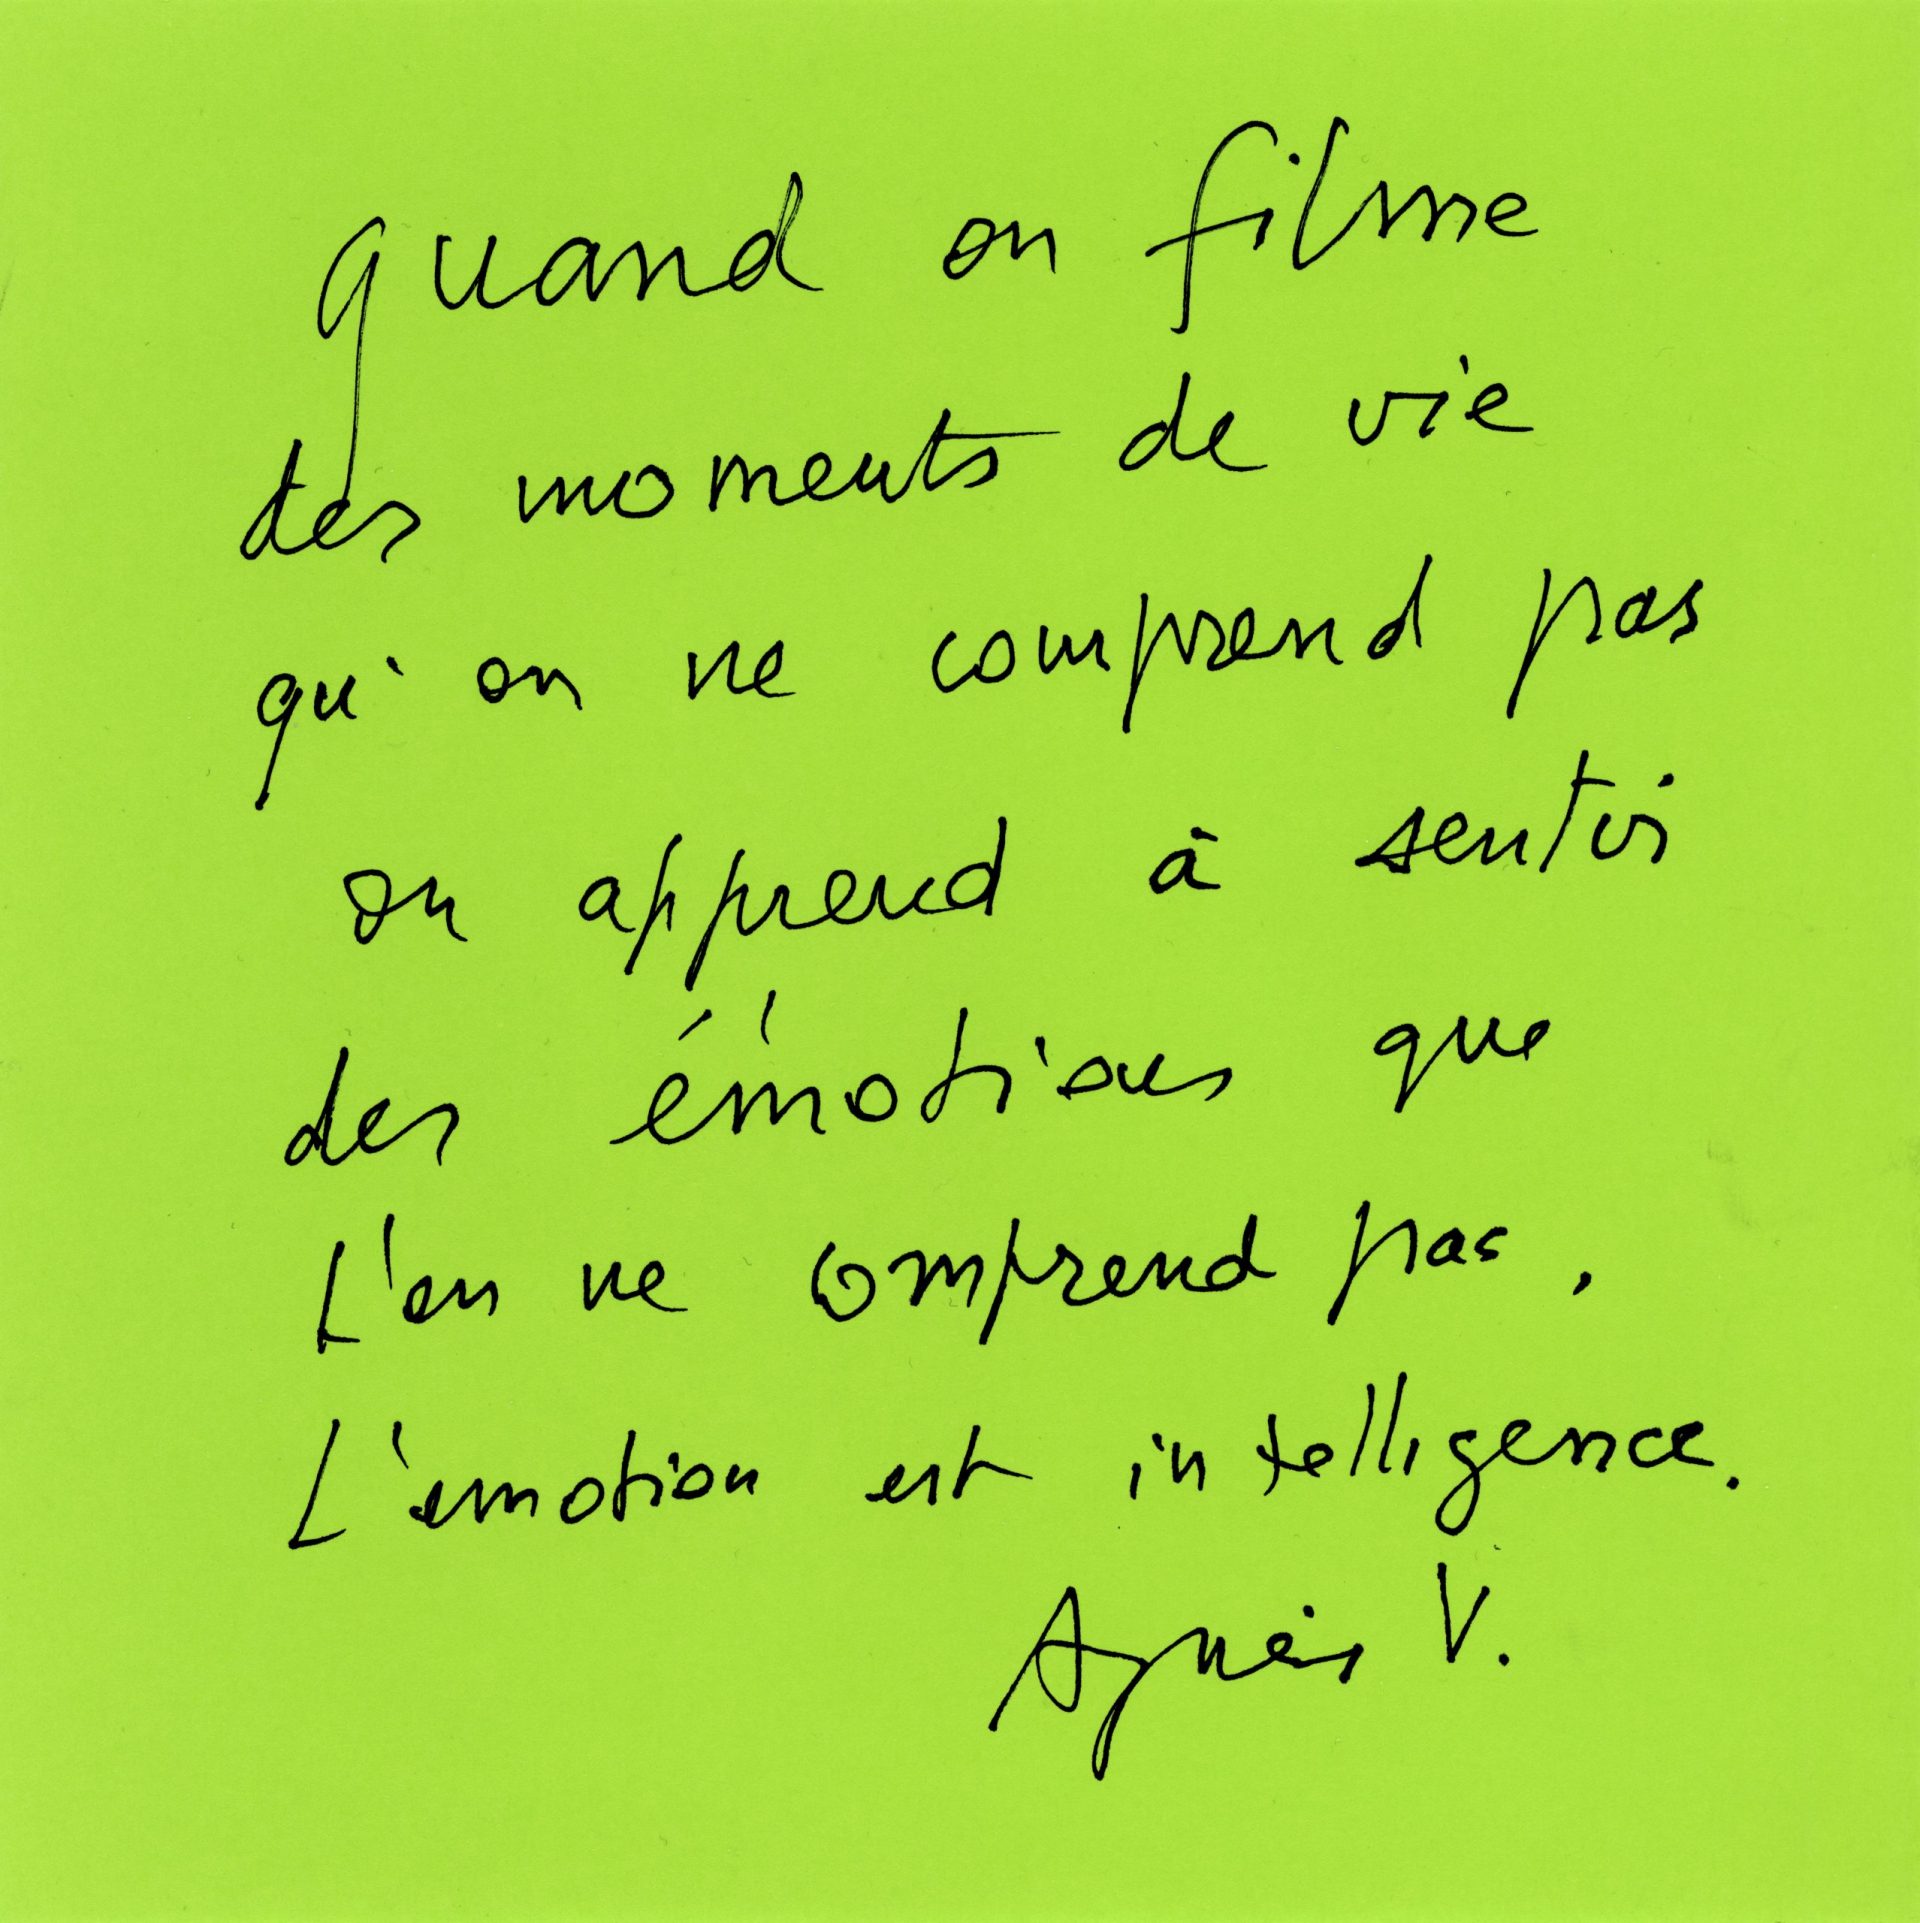 quand on filme
des moments de vie
qu'on ne comprend pas
on apprend à sentir
des émotions que
L'on ne comprend pas,
L'emotion est intelligence.
Agnès V.